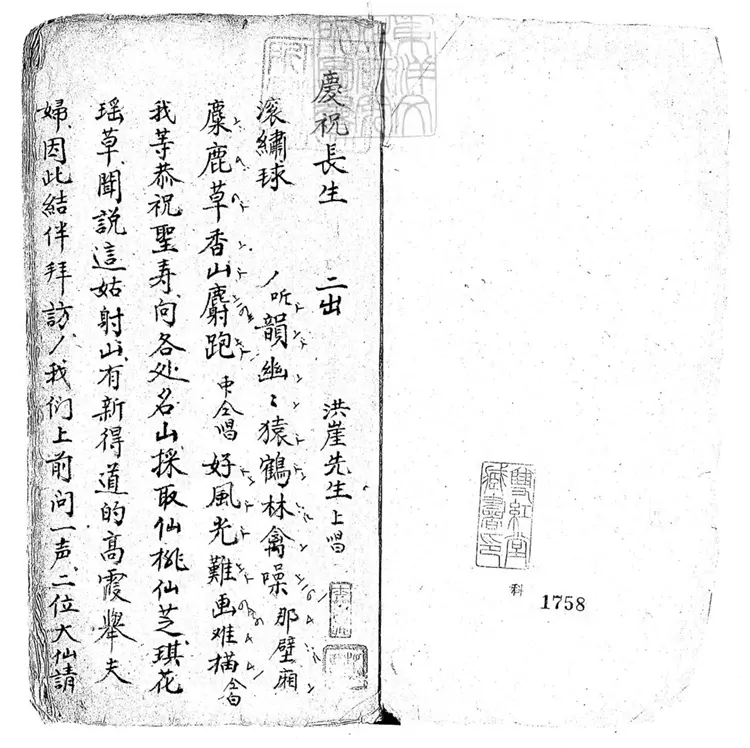 雙紅堂
藏書印
科 1758
慶祝長生 二出 洪崖先生上唱
滚繡球 听韻幽〻猿鶴林禽噪那壁廂
麋鹿草香山麝跑 仝唱好風光難画难描仝白
我等恭祝聖寿向各处名山採取仙桃仙芝琪花
瑶草聞説這姑射山有新得道的高霞舉夫
婦因此結伴拜訪我们上前问一声二位大仙請